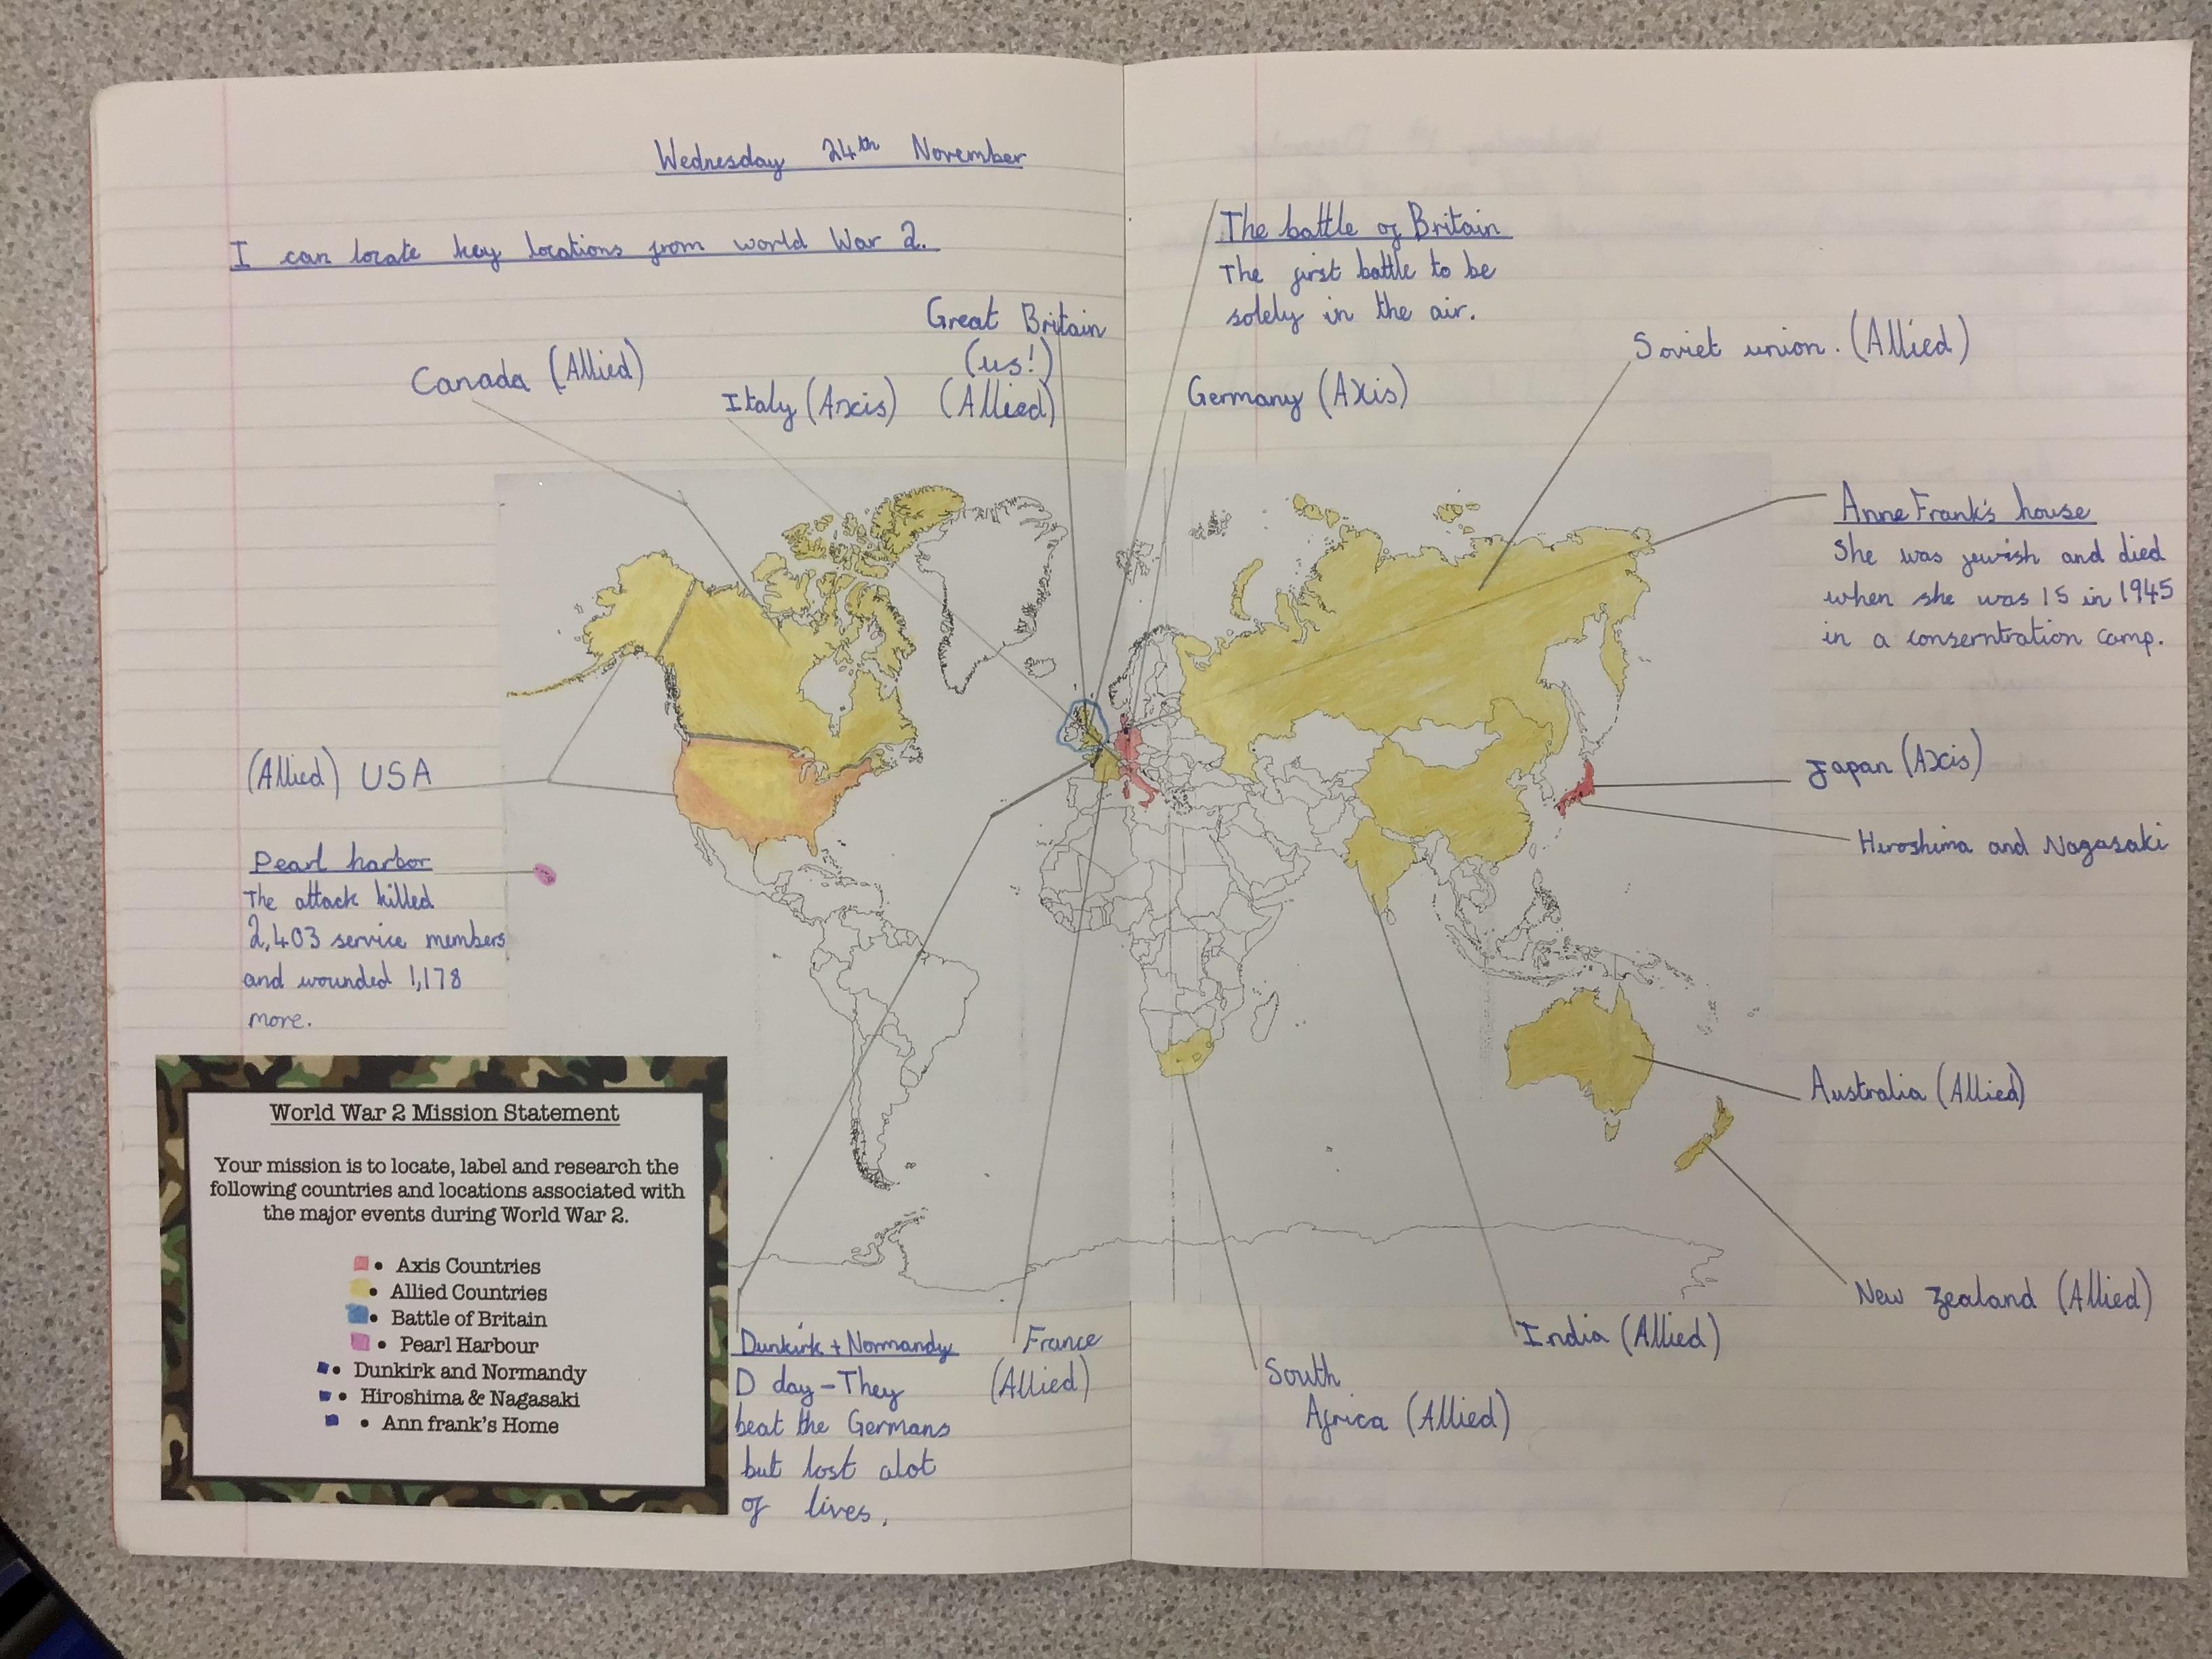 Wednesday 24th November
I can locate key locations from world War 2.
The battle of Britain
The first battle to be
solely in the air.
Great Britain
(us!)
(Allied)
Canada (Allied)
Italy (Axcis)
Germany (AXis)
Soviet union. (Allied)
Anne Frank's house
She was jewish and died
when she was 15 in 1945
in a conserntration camp.
(Allied) USA
Japan (Axis)
Hiroshima and Nagasaki
Pearl harbor
The attack killed
2,403 service members
and wounded 1,178
more.
Australia (Allied)
New Zealand (Allied)
India (Allied)
South
Africa (Allied)
France
(Allied)
Dunkirk + Normandy
D day - They
beat the Germans
but lost alot
of lives.
World War 2 Mission Statement
Your mission is to locate, label and research the
following countries and locations associated with
the major events during World War 2.
• Axis Countries
• Allied Countries
• Battle of Britain
• Pearl Harbour
• Dunkirk and Normandy
• Hiroshima & Nagasaki
• Ann frank's Home